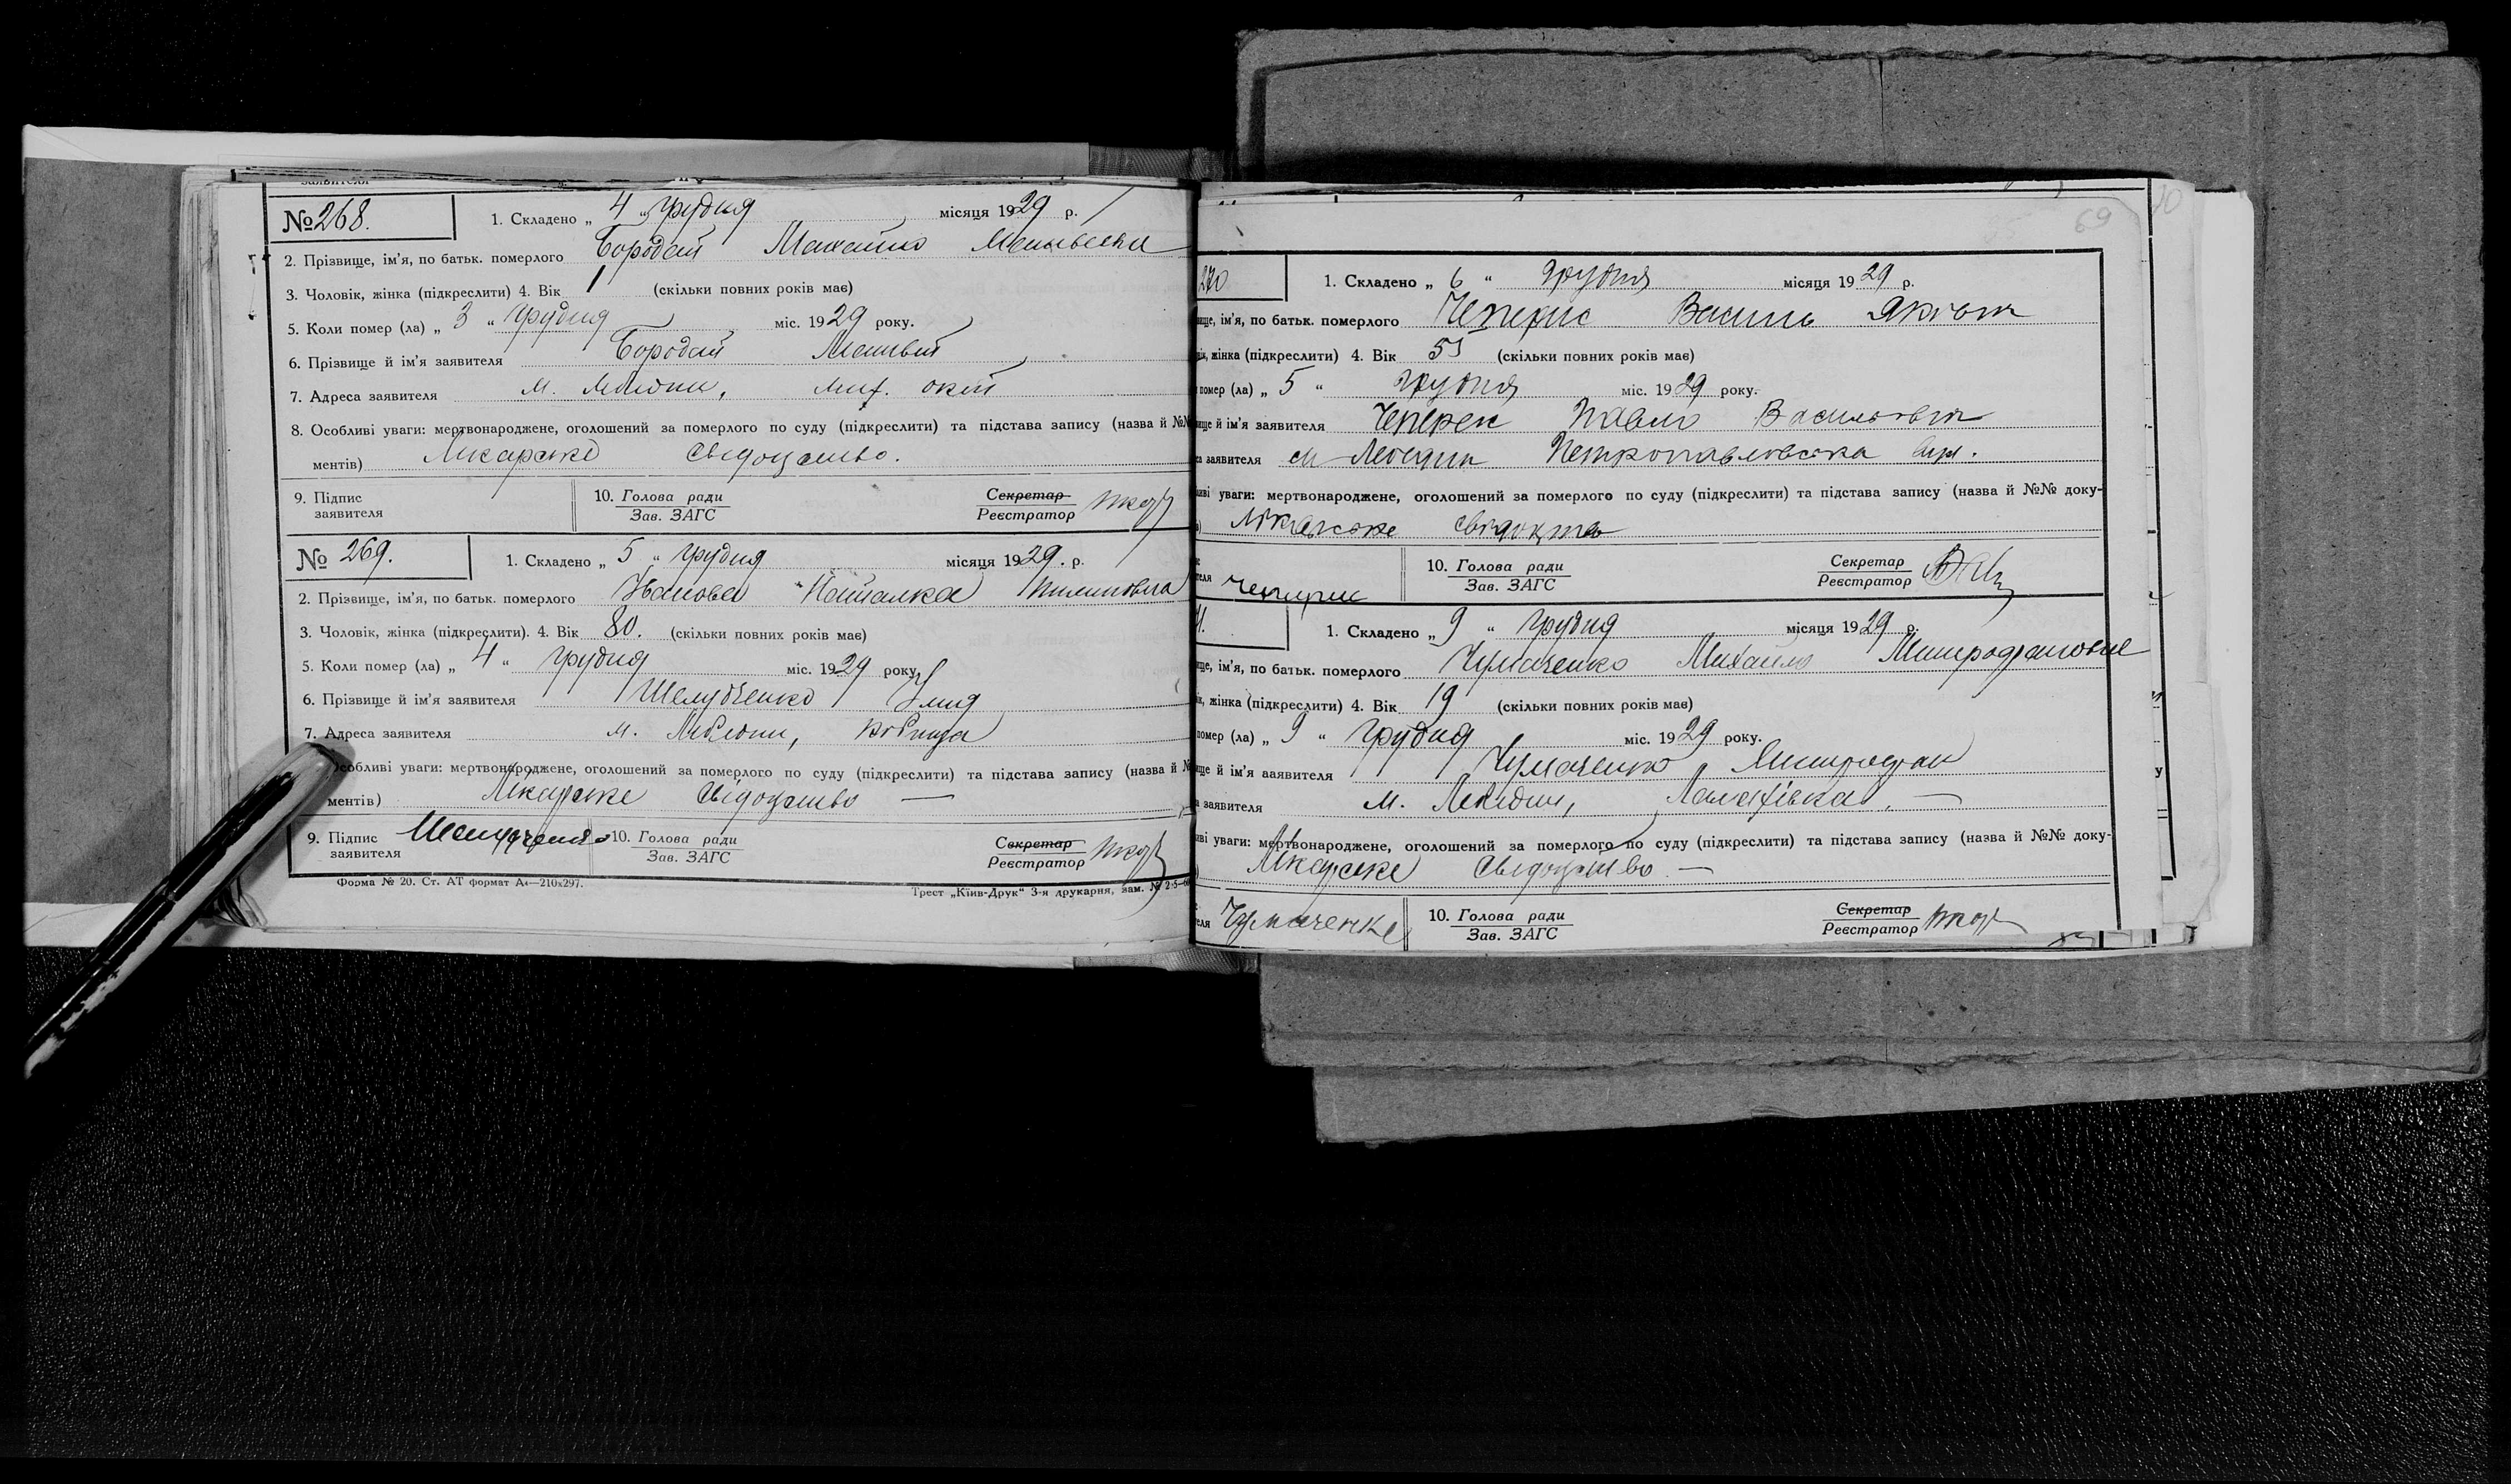 заявителя
№ 268. 1. Складено „ 4 „ грудня місяця 1929 р.
2. Прізвище, ім'я, по батьк. померлого Бородай
3. Чоловік, жінка (підкреслити) 4. Вік 1 (скільки повних років має)
5. Коли помер (ла) „ 3 “ грудня міс. 1929 року.
6. Прізвище й ім'я заявителя Бородай Матвій
7. Адреса заявителя м.
8. Особливі уваги: мертвонароджене, оголошений за померлого по суду (підкреслити) та підстава запису (назва й №№
ментів) Лікарське свідоцтво.
9. Підпис заявителя 10. Голова ради Зав. ЗАГС Секретар Реєстратор
№ 269. 1. Складено „ 5 “ грудня місяця 1929. р.
2. Прізвище, ім'я, по батьк. померлого Іванова Наталка Пилиповна
3. Чоловік, жінка (підкреслити). 4. Вік 80. (скільки повних років має)
5. Коли помер (ла) „ 4 “ грудня міс. 1929 року
6. Прізвище й ім'я заявителя
7. Адреса заявителя м. Лебедин,
Особливі уваги: мертвонароджене, оголошений за померлого по суду (підкреслити) та підстава запису (назва й №
ментів) Лікарське свідоцтво —
9. Підпис заявителя 10. Голова ради Зав. ЗАГС Секретар Реєстратор
Форма № 20. Ст. АТ формат А4—210x297. Трест „Київ-Друк“ 3-я друкарня, зам. №
69
270 1. Складено „ 6 “ грудня місяця 1929 р.
ім'я, по батьк. померлого Василь Яківич
жінка (підкреслити) 4. Вік 55 (скільки повних років має)
помер (ла) „ 5 “ грудня міс. 1929 року.
й ім'я заявителя Павло Васильович
заявителя м Лебедин Петропавловська вул.
уваги: мертвонароджене, оголошений за померлого по суду (підкреслити) та підстава запису (назва й №№ доку-
Лікарське свідоцтв
10. Голова ради Зав. ЗАГС Секретар Реєстратор
1. Складено „ 9 “ грудня місяця 1929 р.
ім'я, по батьк. померлого Чумаченко Михайло Митрофанович
жінка (підкреслити) 4. Вік 19 (скільки повних років має)
помер (ла) „ 9 “ грудня міс. 1929 року.
й ім'я заявителя Чумаченко Митрофан
заявителя м. Лебедин,
уваги: мертвонароджене, оголошений за померлого по суду (підкреслити) та підстава запису (назва й №№ доку-
Лікарське свідоцтво —
Чумаченко 10. Голова ради Зав. ЗАГС Секретар Реєстратор